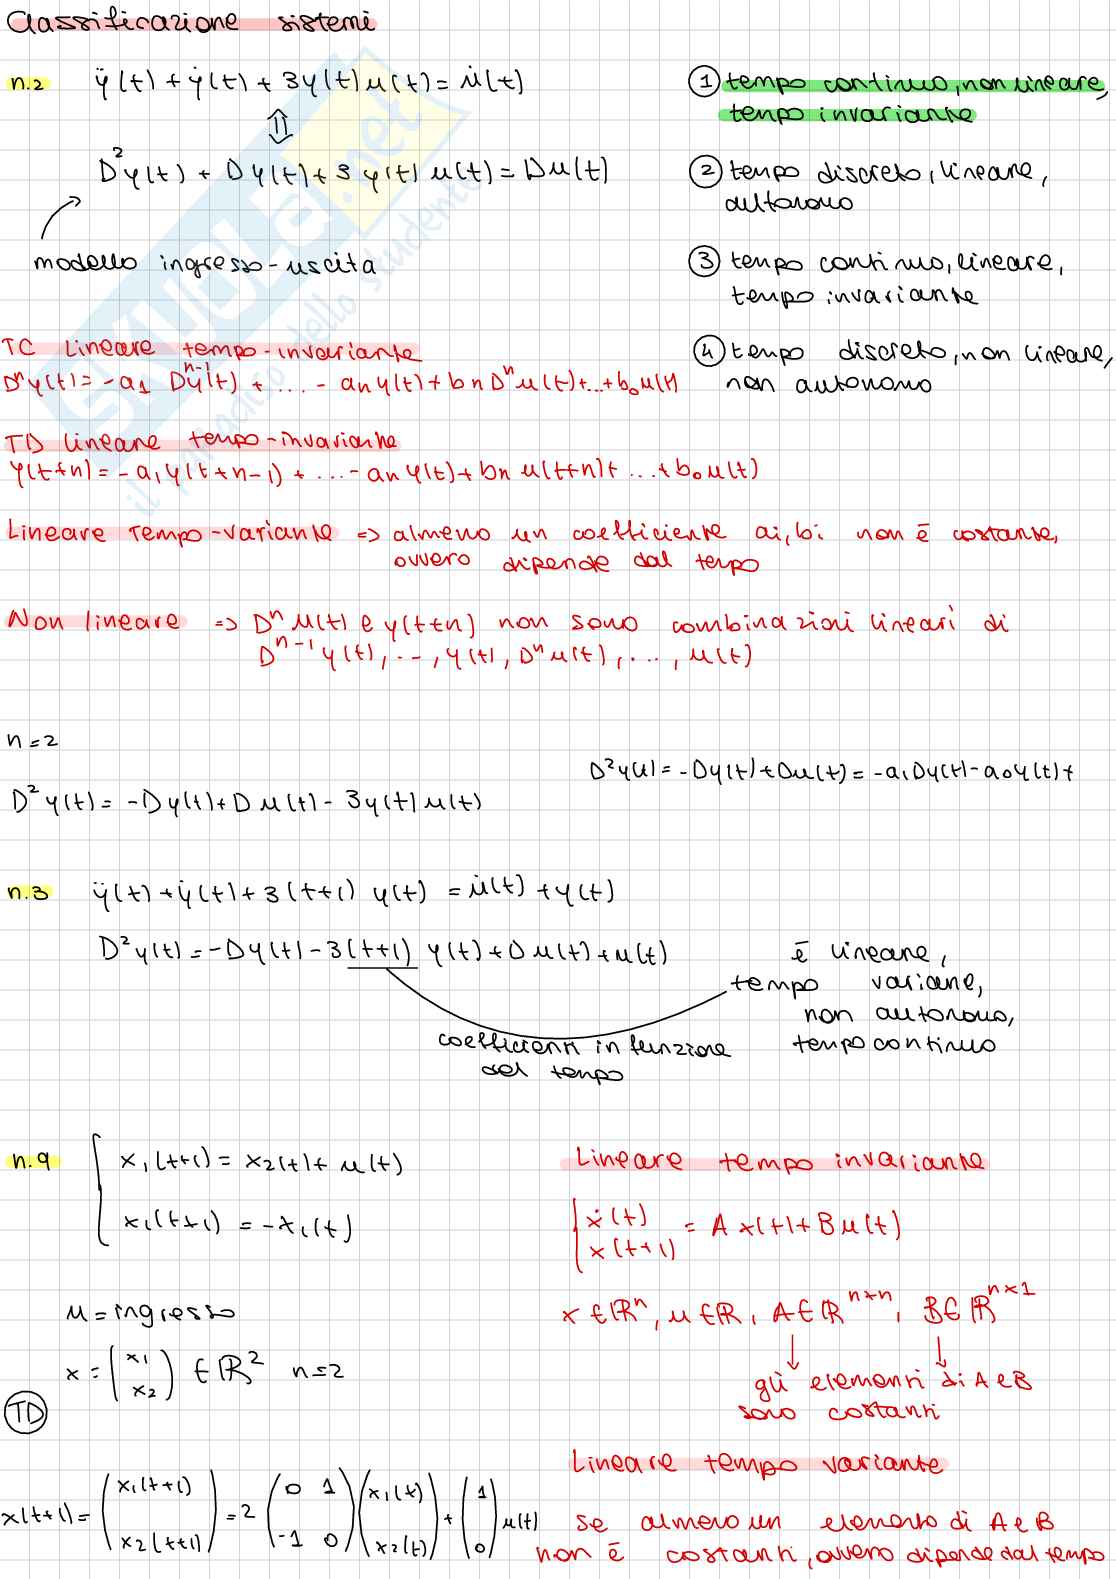 Classificazione sistemi
n.2 ÿ(t) + ẏ(t) + 3y(t)u(t) = u̇(t)
⇕
D²y(t) + Dy(t) + 3 y(t) u(t) = Du(t)
modello ingresso-uscita
① tempo continuo, non lineare,
tempo invariante
② tempo discreto, lineare,
autonomo
③ tempo continuo, lineare,
tempo invariante
④ tempo discreto, non lineare,
non autonomo
TC Lineare tempo-invariante
Dⁿy(t) = -a₁ Dⁿ⁻¹y(t) + ... - an y(t) + bn Dⁿu(t) + ... + b₀u(t)
TD lineare tempo-invariante
y(t+n) = -a₁y(t+n-1) + ... - an y(t) + bn u(t+n) + ... + b₀u(t)
Lineare Tempo-variante => almeno un coefficiente ai, bi non è costante,
ovvero dipende dal tempo
Non lineare => Dⁿu(t) e y(t+n) non sono combinazioni lineari di
Dⁿ⁻¹y(t), ..., y(t), Dⁿu(t), ..., u(t)
n=2
D²y(t) = -Dy(t) + Du(t) = -a₁Dy(t) - a₀y(t) +
D²y(t) = -Dy(t) + Du(t) - 3y(t)u(t)
n.3 ÿ(t) + ẏ(t) + 3(t+1) y(t) = u̇(t) + y(t)
D²y(t) = -Dy(t) - 3(t+1) y(t) + Du(t) + u(t)
coefficienti in funzione
del tempo
è lineare,
tempo variane,
non autonomo,
tempo continuo
n.9 { x₁(t+1) = x₂(t) + u(t)
x₁(t+1) = -x₁(t)
u = ingresso
x = (x₁ x₂) ∈ ℝ² n=2
TD
x(t+1) = (x₁(t+1) x₂(t+1)) = 2 (0 1 -1 0)(x₁(t) x₂(t)) + (1 0) u(t)
Lineare tempo invariante
{ ẋ(t) x(t+1) = A x(t) + B u(t)
x ∈ ℝⁿ, u ∈ ℝ, A ∈ ℝⁿˣⁿ, B ∈ ℝⁿˣ¹
gli elementi di A e B
sono costanti
Lineare tempo variante
se almeno un elemento di A e B
non è costanti, ovvero dipende dal tempo
SKUOLA.net
il paradiso dello studente